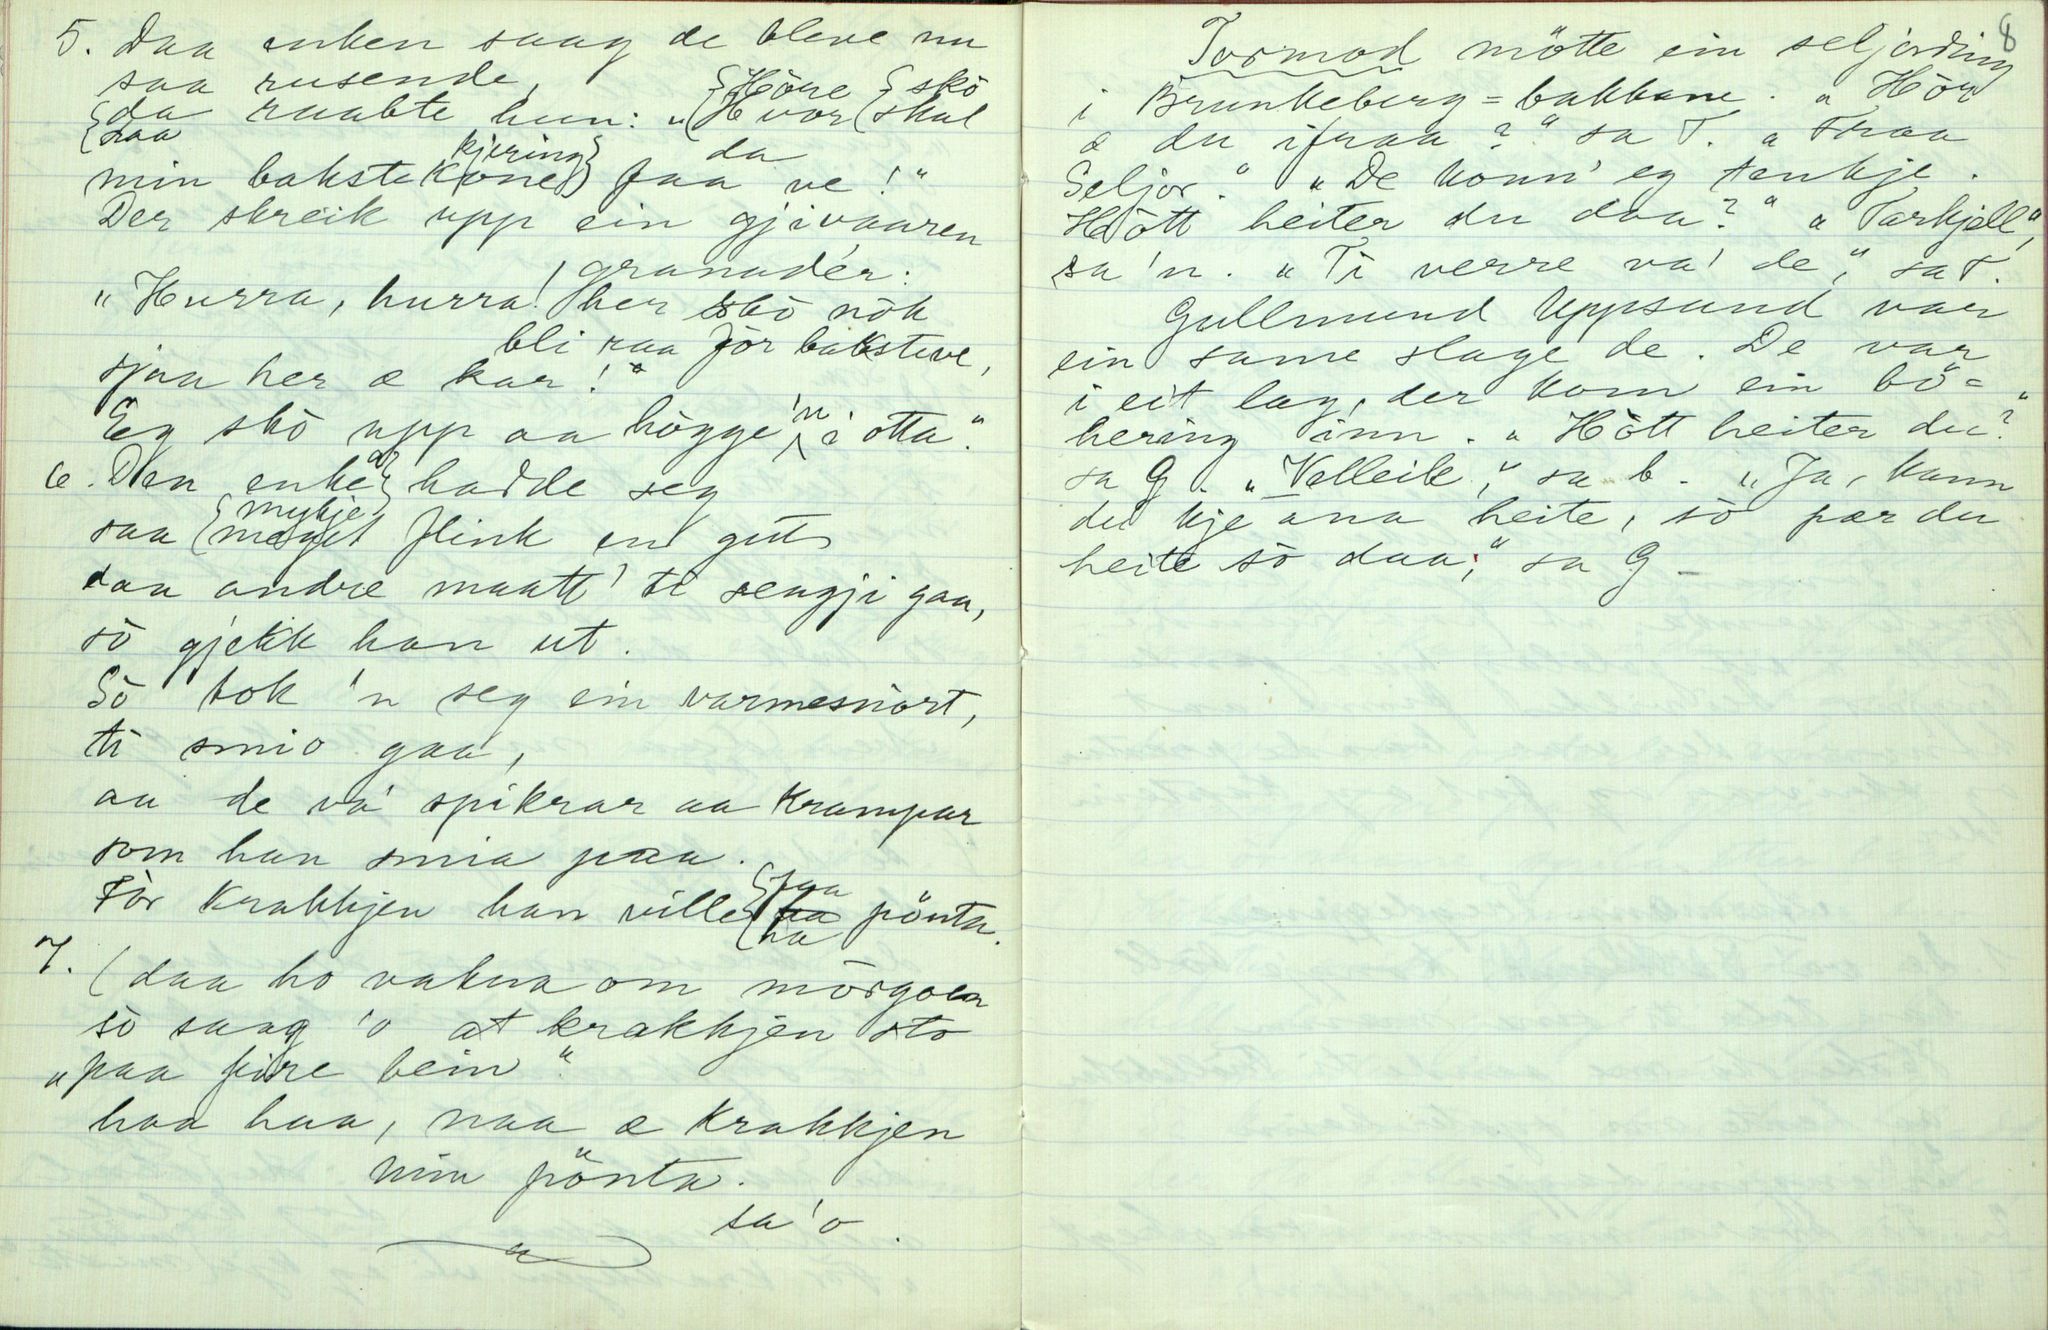 5. Daa enken saag de bleve nu
saa rusende,
{Höre {skö
{da raabte hun: „{Hvor {skal
{saa
kjering} da
min bakstekone} faa ve!"
Der skreik upp ein gjivaaren
granadér:
„Hurra, hurra! her skö nök
bli raaför baksteve,
sjaa her æ kar!"
Eg skö upp aa högge 'n i otta."
6. Den enka} hadde seg
{mykje
saa {meget flink en gut
daa andre maatt' ti sengji gaa,
sö gjekk han ut.
Sö tok 'n seg ein varmesnört,
ti smio gaa,
aa de va' spikrar aa krampar
som han smia paa.
{faa
För krakkjen han ville {aa pönta.
{ha
7. (daa ho vakna om mörgoen
sö saag 'o at krakkjen sto
„paa fire bein"
haa haa, naa æ krakkjen
min pönta.
sa 'o.
8
Tormod mötte ein seljording
i Brunkeberg=bakkane. „Hör
æ du ifraa?" sa T. „Fraa
Seljor." „De konn' eg tenkje.
Hött heiter du daa?" „Tarkjell",
sa 'n. „Ti verre va' de," sa T.
Gullmund Uppsund var
ein same slage de. De var
i eit lag, der kom ein bö=
hering inn. „Hött heiter du?"
sa G. „Velleik," sa b. „Ja, kann
du kje ana heite, sö fær du
heite sö daa," sa G –